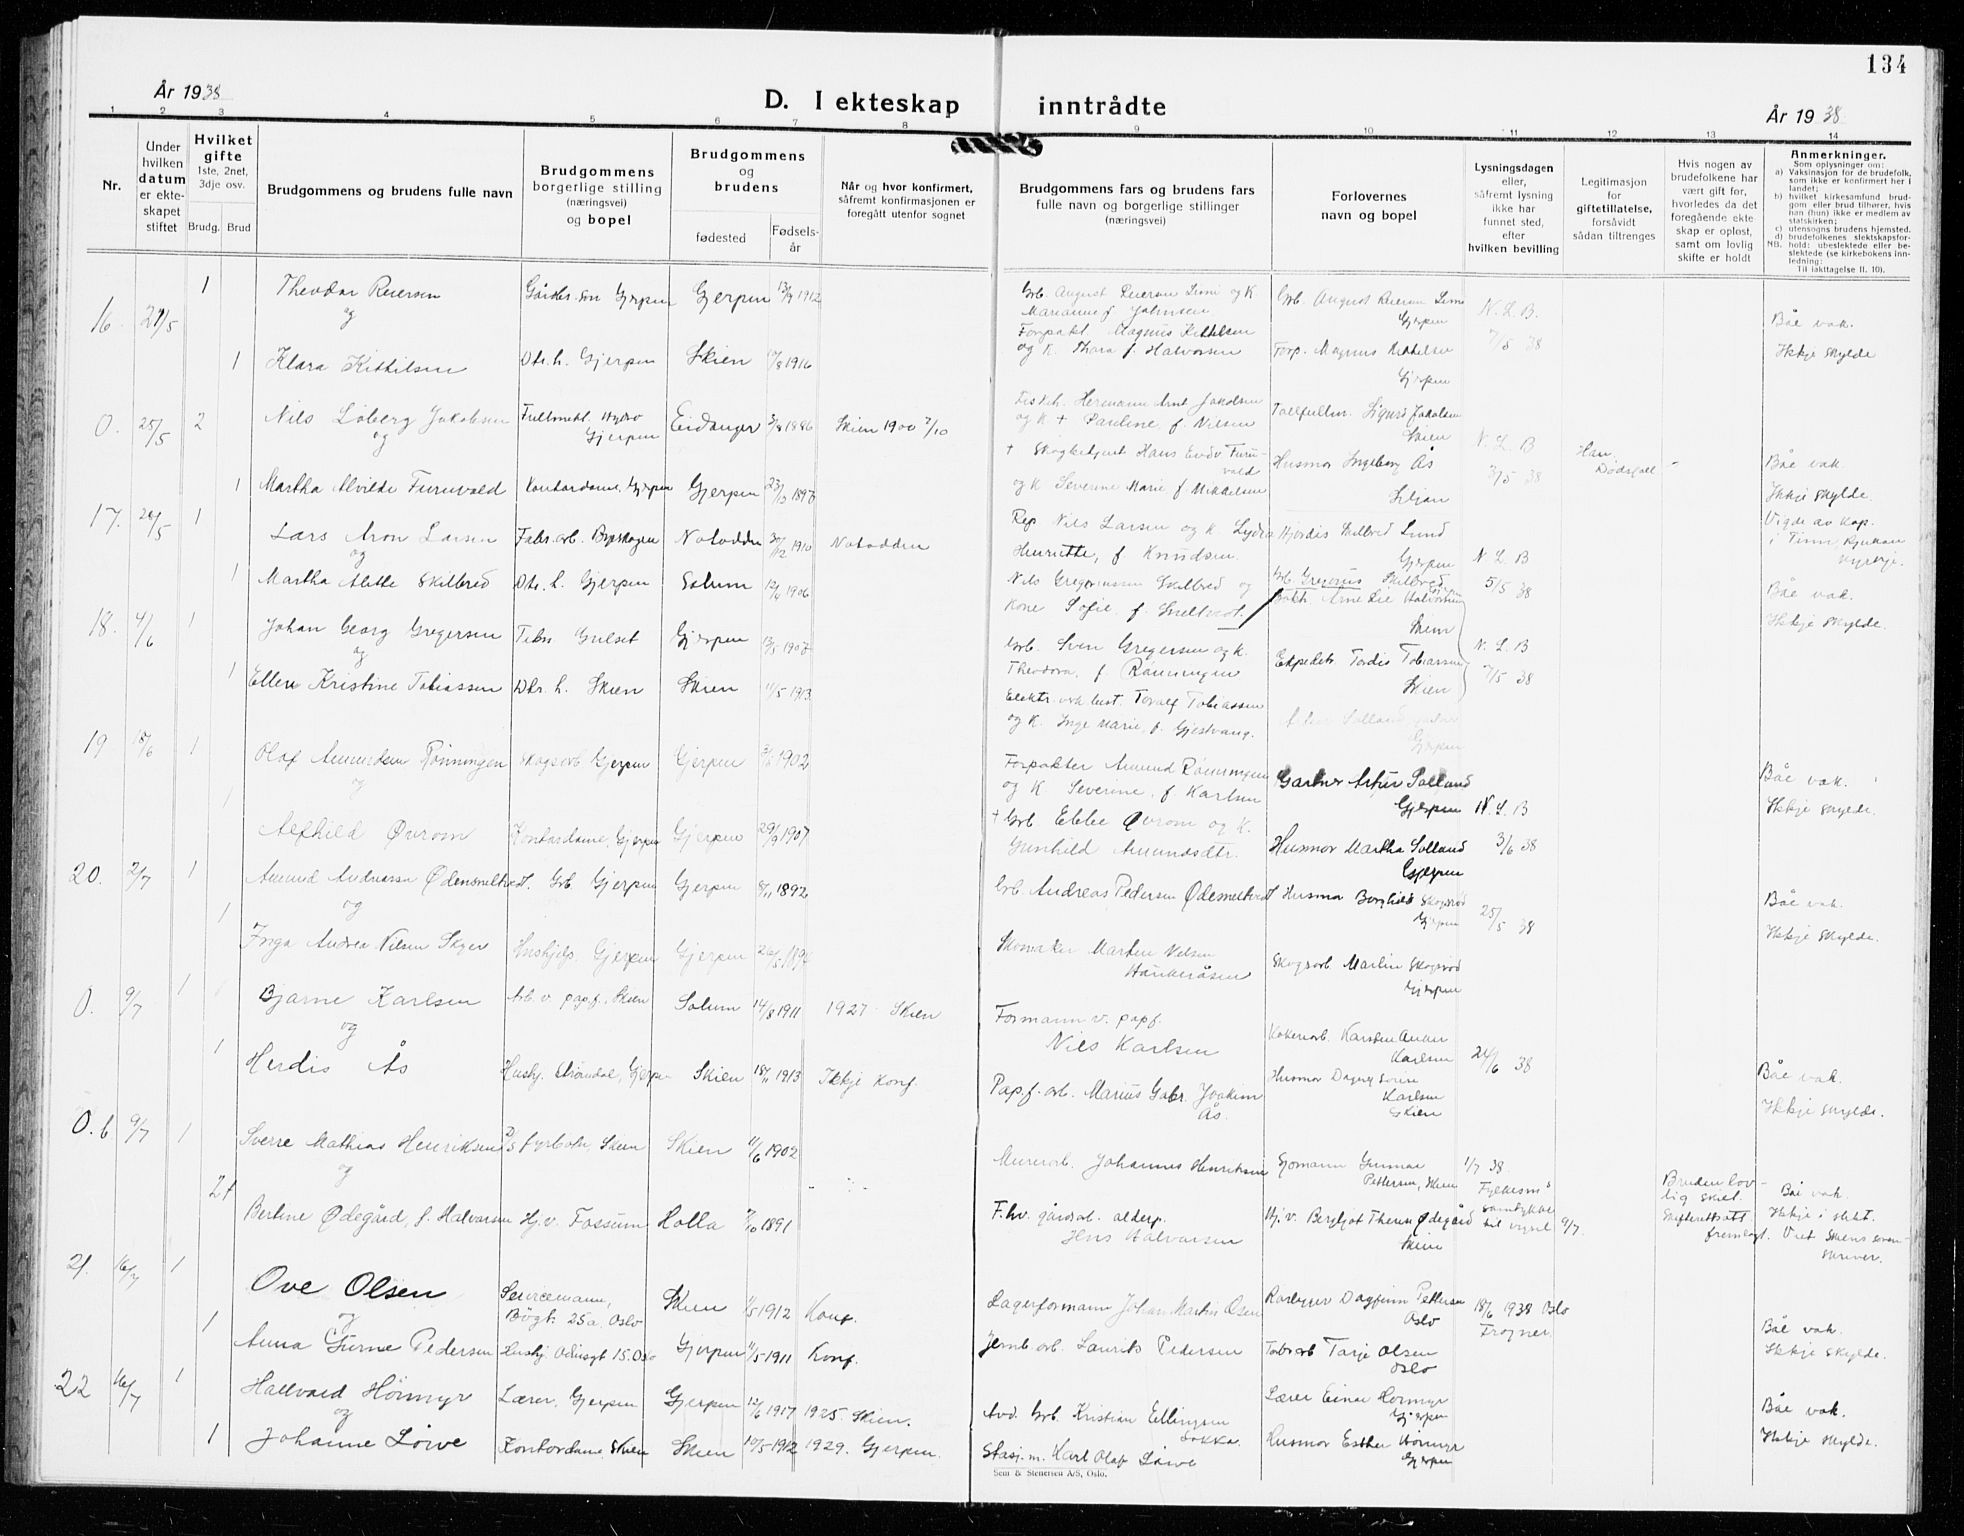 134
År 1938
D. I ekteskap inntrådte
År 1938
1 2 3 4 5 6 7 8 9 10 11 12 13 14
Nr.
Under hvilken datum er ekteskapet stiftet
Hvilket gifte
1ste, 2net, 3dje osv.
Brudg. Brud
Brudgommens og brudens fulle navn
Brudgommens borgerlige stilling (næringsvei) og bopel
Brudgommens og brudens
fødested
Fødselsår
Når og hvor konfirmert, såfremt konfirmasjonen er foregått utenfor sognet
Brudgommens fars og brudens fars fulle navn og borgerlige stillinger (næringsvei)
Forlovernes navn og bopel
Lysningsdagen eller, såfremt lysning ikke har funnet sted, efter hvilken bevilling
Legitimasjon for giftetillatelse, forsåvidt sådan tiltrenges
Hvis nogen av brudefolkene har vært gift før, hvorledes da det foregående ekteskap er oplost, samt om lovlig skifte er holdt
Anmerkninger.
Som oplysninger om:
a) Vaksinasjon for de brudefolk, som ikke er konfirmert her i landet;
b) hvilket kirkesamfund brudgom eller brud tilhører, hvis han (hun) ikke er medlem av statskirken;
c) utensogns brudens hjemsted.
d) brudefolkenes slektskapsforhold: ubeslektede eller beslektede (se kirkebokens innledning:
NB. Til iakttagelse II. 10).
16. 21/5 1 Theodor Reiersen Gjerpen Gjerpen 1912
og
1 Klara Kittilsen Dtr. h. Gjerpen Skien 1916
Grb. August Reiersen Limi og K.
Marianne f. Johnsen
Forpakt. Magnus Kittelsen
og K. Thora f. Halvorsen
Grb. August Reiersen Limi
Gjerpen
Forp. Magnus Kittelsen
Gjerpen
N. L. B.
7/5 38
Båe vak.
Ikkje skylde
0. 25/5 2 Nils Løberg Jakobsen Gjerpen Eidanger 1886 Skien 1900 7/10
og
1 Martha Alvilde Furuvald Kontordame, Gjerpen Gjerpen 1897
Hermann Arnt Jakobsen
og K + Pauline f. Nilsen
+ Skogbetjent Hans Edv. Furuvald
og K Severine Marie f. Mikkelsen
Sigurd Jakobsen
Skien
Husmor Ingeborg Ås
Siljan
N. L. B
3/5 38
Han Dødsfall
Båe vak.
Ikkje skylde.
17. 26/5 1 Lars Aron Larsen Fabr. arb. Gjerpen Notodden 30/12 1910 Notodden
og
1 Martha Alette Skilbred Dtr. h. Gjerpen Solum 12/4 1906
Rep Nils Larsen og K. Lydia
Henriette, f Knudsen.
Nils Gregoriussen Skilbred og
Kone Sofie, f. Sneltvedt.
Hjørdis Skilbred Lund
Gjerpen
Grb. Gregorius Skilbred
N. L. B
5/5 38
Vigde av kap.
i Tinn, Rjukan
kyrkje.
Båe vak.
Ikkje skylde.
18. 4/6 1 Johan Georg Gregersen Gulset Gjerpen 1907
og
1 Ellen Kristine Tobiassen Dtr. h. Skien Skien 11/5 1913
Grb. Sven Gregersen og K.
Theodora, f. Rønningen
Toralf Tobiassen
og K. Inge Marie, f. Gjestvang.
Arne Lie Halvorsen
Skien
Ekspeditr. Tordis Tobiassen
Skien
N. L. B
7/5 38
19 18/6 1 Olaf Amundsen Rønningen Skogsarb Gjerpen Gjerpen 1902
og
1 Alfhild Øvrom Kontordame, Gjerpen Gjerpen 29/9 1907
Forpakter Amund Rønningen
og K. Severine, f Karlsen
+ Grb. Ellef Øvrom og K.
Gunhild Amundsdtr.
Gartner Artur Solland
Gjerpen
Husmor Martha Solland
Gjerpen
N. L. B
3/6 38
Båe vak.
Ikkje skylde.
20. 2/7 1 Amund Andreassen Ødemneltvedt. Grb Gjerpen Gjerpen 8/11 1892
og
1 Inga Andrea Nilsen Skyer Hushjelp. Gjerpen Gjerpen 26/5 1894
Grb. Andreas Pedersen
Skomaker Marten Nilsen
Husmor Borghild Skogsrød
Gjerpen
Skogsarb. Martin Skogsrød
Gjerpen
25/5 38
Båe vak.
Ikkje skylde.
0. 9/7 1 Bjarne Karlsen Arb. v. papf. Skien Solum 14/8 1911 1927 Skien
og
1 Herdis Ås Hushj. Strømdal, Gjerpen Skien 18/11 1913 Ikkje Konf.
Formann v. papf.
Nils Karlsen
Pap.f. arb. Marius Gabr. Joakim
Ås.
Karsten Anker
Karlsen
Husmor Dagny Sorine
Karlsen
Skien
24/6 38
Båe vak.
Ikkje skylde.
0. b 9/7 1 Sverre Mathias Henriksen fyrbøter, Skien Skien 11/6 1902
og
2+ Bertine Ødegård, f. Halvorsen Hj. v. Fossum Holla 7/10 1891
Murerarb. Johannes Henriksen
F. hv. gårdsarb. alderp.
Jens Halvorsen
Sjømann Gunnar
Pettersen, Skien
Hj. v. Bergljot Therese Ødegård
Skien
1/7 38.
Fylkesm
samtykke
til vigsel 9/7
Bruden lovlig skilt.
Skifterettsatt fremlagt.
Båe vak.
Ikkje i slekt.
Skiens sorenskriver.
21. 16/7 1 Ove Olsen Servicemann, Bögt. 25a. Oslo Skien 1/5 1912 Konf.
og
1 Anna Gurine Pedersen Hushj. Odinsgt 15. Oslo Gjerpen 11/5 1911 Konf.
Lagerformann Johan Martin Olsen
Jernb. arb. Laurits Pedersen
Rørlegger Dagfinn Pettersen
Oslo
Tarje Olsen
Oslo
18/6 1938 Oslo
Frogner.
Båe vak.
Ikkje skylde.
22 16/7 1 Hallvard Hörmyr Lærer, Gjerpen Gjerpen 12/6 1917 1925. Skien.
og
1 Johanne Löwe Kontordame, Skien Skien 10/5 1912 1929. Gjerpen.
Avd. Grb. Kristian Ellingsen
Løkka.
Stasj. m. Karl Olaf Löwe
Lærer Einar Hörmyr
Gjerpen
Husmor Esther Hörmyr
Gjerpen
Båe vak.
Ikkje skylde.
Sem & Stenersen A/S, Oslo.